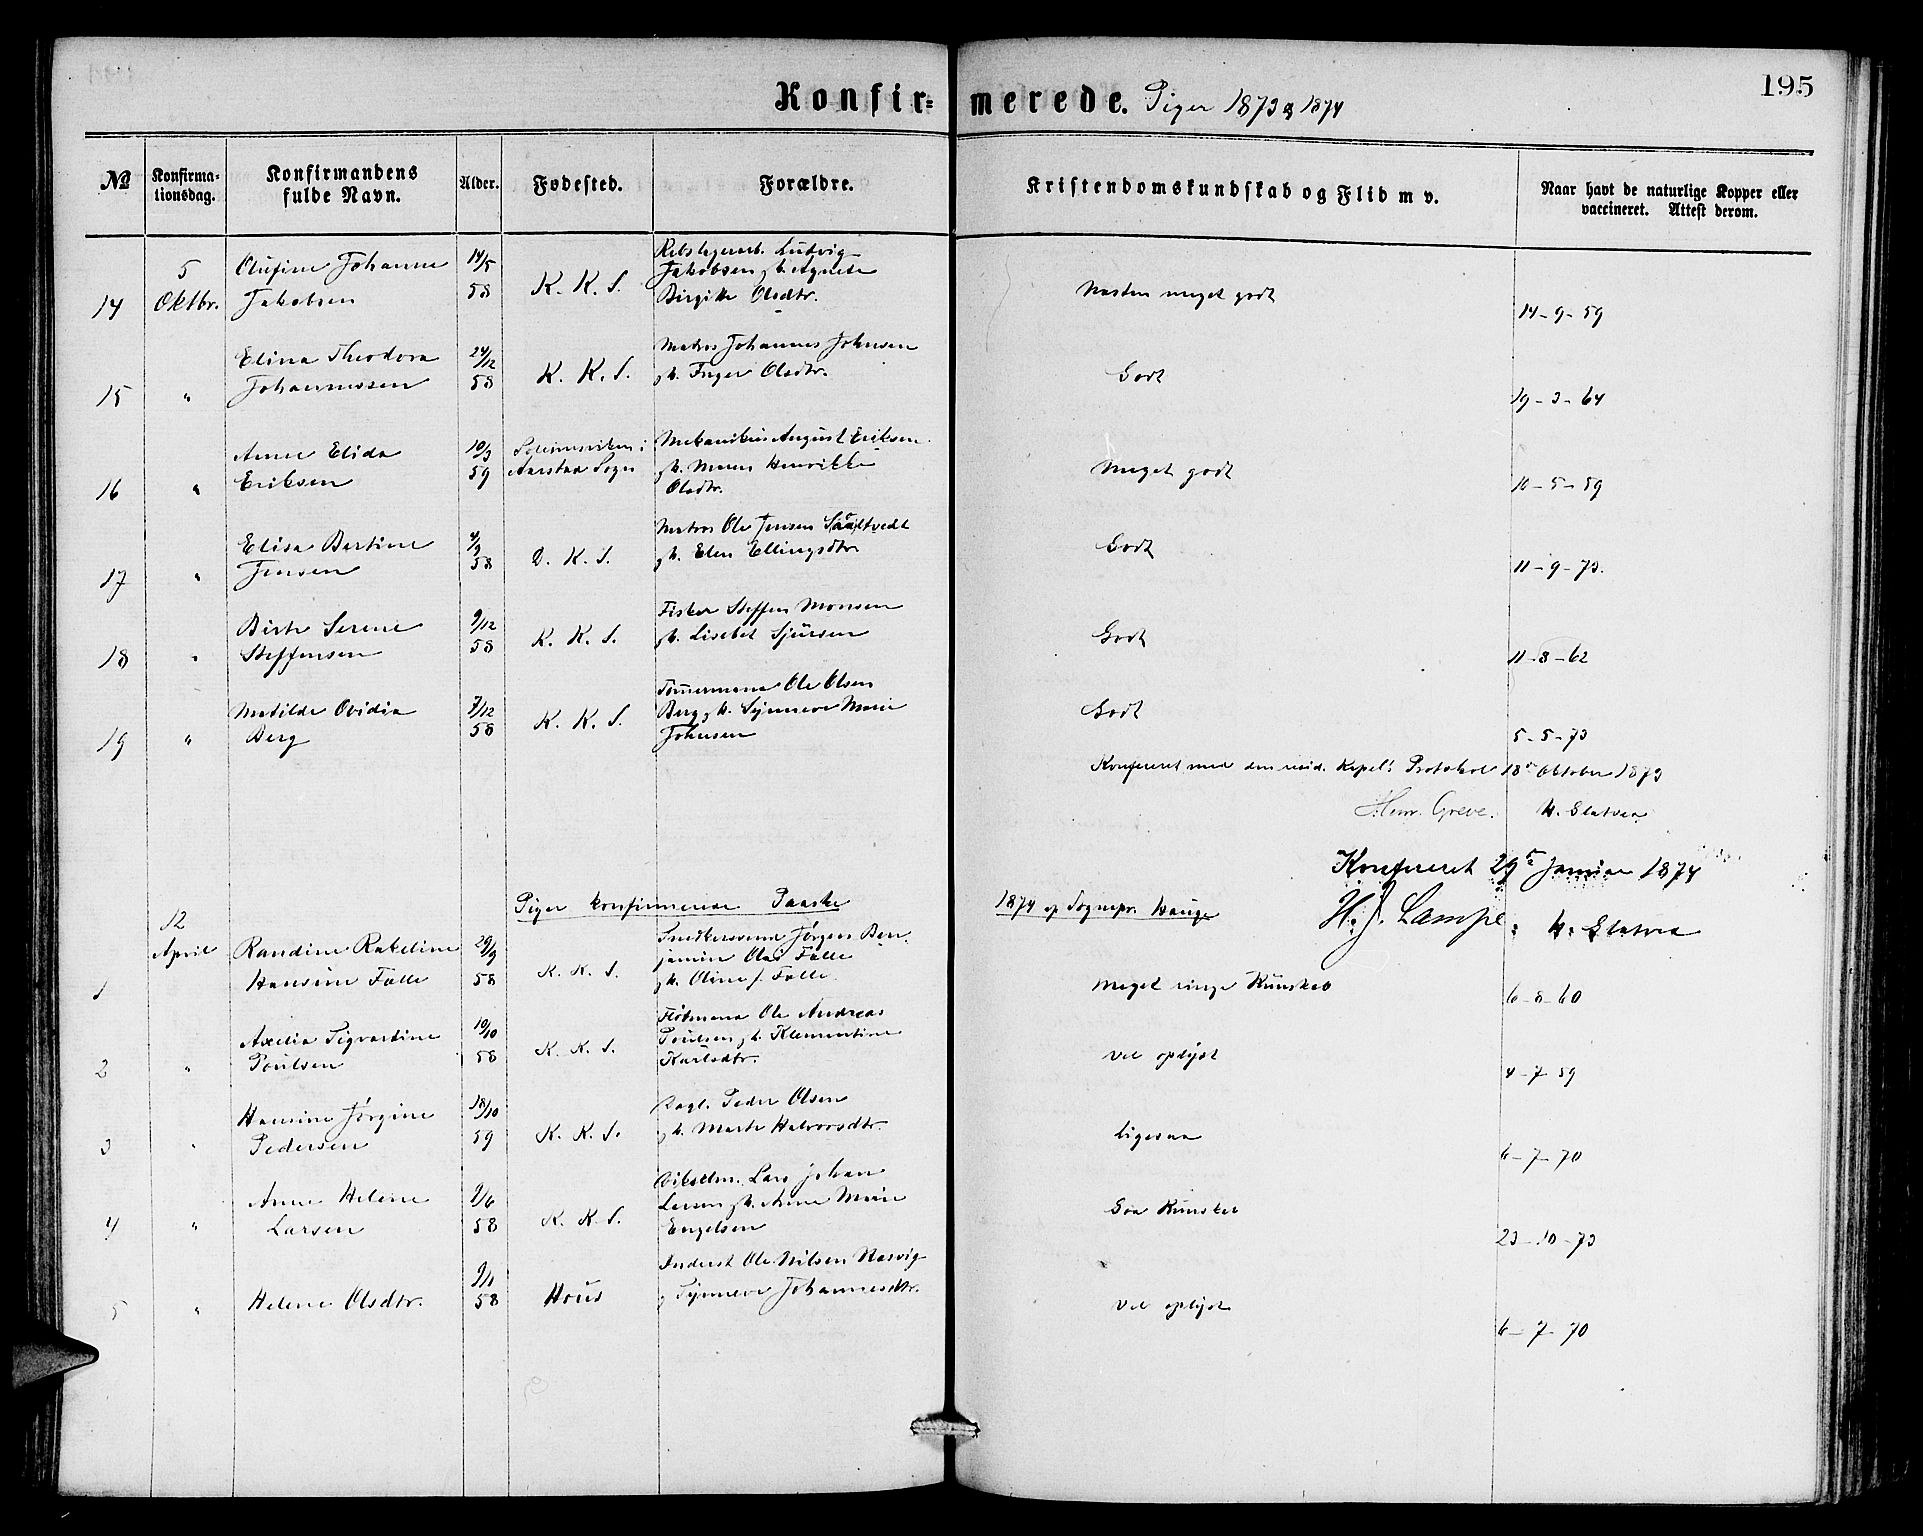 195
Konfir= merede. Piger 1873 og 1874
No
Konfirma-
tionsdag.
Konfirmandens
fulde Navn.
Alder.
Fødested.
Forældre.
Kristendomskundskab og Flid m v.
Naar havt de naturlige Kopper eller
vaccineret. Attest derom.
14
5
Oktbr.
Olufine Johanne
Jakobsen
14/5
58
K. K. S.
Ludvig
Jakobsen g h. Agnete
Birgitte Olsdtr.
Næsten meget godt
14-9-59
15
"
Elina Theodora
Johannessen
24/12
58
K. K. S.
Matros Johannes Johnsen
g h. Inger Olsdtr.
Godt
19-3-64
16
"
Anne Elida
Eriksen
10/3
59
Solheimsviken i
Aarstad Sogn
Mekanikus August Eriksen
g h. Maren Henrikke
Olsdtr.
Meget godt
10-5-59
17
"
Elisa Bertine
Jensen
4/9
58
D. K. S.
Matros Ole Jensen
g h. Elen Ellingsdtr
Godt
11-9-73.
18
"
Birte Serene
Steffensen
9/12
58
K. K. S.
Fisker Steffen Monsen
g h. Lisebet Sjursen
Godt
11-8-62
19
"
Matilde Ovidia
Berg
7/12
58
K. K. S.
Tømmermand Ole Olsen
Berg g h. Synneve Marie
Johnsen
Godt
5-5-73
Konfereret med den resid. Kapel.s Protokol 18de Oktober 1873
Henr. Greve. H. Slatven
Konfereret 29de Januar 1874
H. J. Lampe. H. Slatven
Piger konfirmerede Paaske 1874 af Sognepr. Hauge
1
12
April
Randine Rakeline
Hansine Falle
29/9
58
K. K. S.
Snedkersvend Jørgen Ben-
jamin Olai Falle
g h. Oline f. Falle.
Meget ringe Kundskab
6-8-60
2
"
Axelia Sigvartine
Poulsen
10/10
58
K. K. S.
Ole Andreas
Poulsen g h. Klementine
Karlsdtr.
Vel oplyst
4-7-59
3
"
Hansine Jørgine
Pedersen
18/10
59
K. K. S.
Dagl. Peder Olsen
g h. Marte Halvorsdtr.
Ligesaa
6-7-70
4
"
Anne Helene
Larsen
9/6
58
K. K. S.
Lars Johan
Larsen g h. Anne Marie
Engelsen
God Kundskab
23-10-73
5
"
Helene Olsdtr.
9/11
58
Hous
Inderst Ole Nilsen
g Synneve Johannesdtr.
Vel oplyst
6-7-70